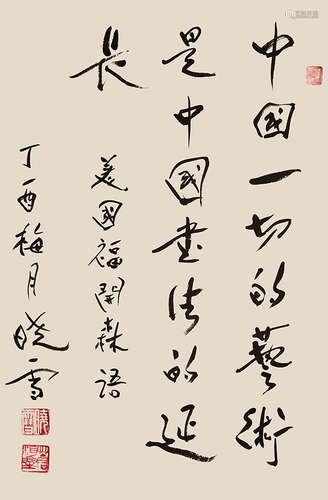 中國一切的藝術
是中國书法的延
長
美國福開森語
丁酉梅月晓雪